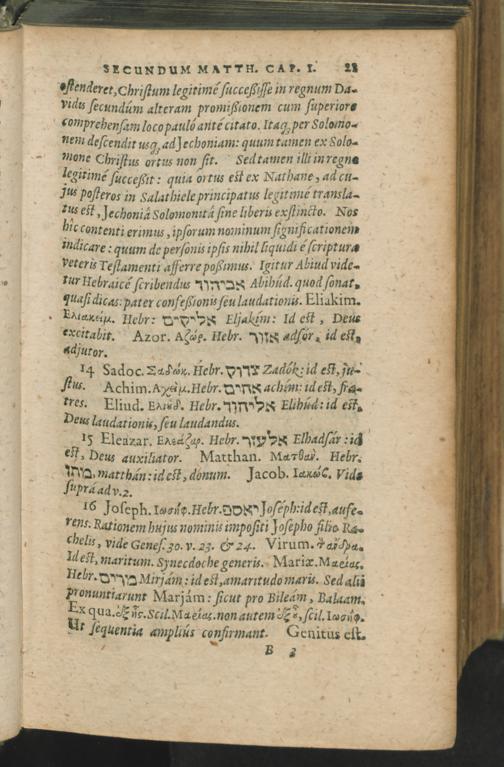 SECUNDUM MATTH. CAP. I. 21
ostenderet, Christum legitimé succeßisse in regnum Da-
vidis secundúm alteram promißionem cum superiore
comprehensam loco pauló ante citato. Itaq; per Solomo-
nem descendit usq; ad Jechoniam: quum tamen ex Solo-
mone Christus ortus non sit. Sed tamen illi in regno
legitimé succeßit: quia ortus est ex Nathane, ad cu-
jus posteros in Salathiele principatus legitimé transla-
tus est, Jechoniâ Solomonitâ sine liberis exstincto. Nos
hîc contenti erimus, ipsorum nominum significationem
indicare: quum de personis ipsis nihil liquidi é scriptura
veteris Testamenti afferre poßimus. Igitur Abiud vide-
tur Hebraicé scribendus אביהוד Abihúd. quod sonat,
quasi dicas: pater confeßionis seu laudationis. Eliakim.
Ελιακείμ. Hebr: אליקים Eljakím: Id est, Deus
excitabit. Azor. Αζώρ. Hebr. אזור adsór, id est,
adjutor.
14 Sadoc. Σαδώκ. Hebr. צדוק Zadók: id est, ju-
stus. Achim. Αχείμ. Hebr. אחים achím: id est, fra-
tres. Eliud. Ελιύδ. Hebr. אליהוד Elihúd: id est,
Deus laudationis, seu laudandus.
15 Eleazar. Ελεάζαρ. Hebr. אלעזר Elhadsár: id
est, Deus auxiliator. Matthan. Ματθαν. Hebr.
מתן, matthán: id est, donum. Jacob. Ιακώβ. Vide
supra ad v. 2.
16 Joseph. Ιωσήφ. Hebr. יאספ Joséph: id est, aufe-
rens. Rationem hujus nominis impositi Josepho filio Ra-
chelis, vide Genes. 30. v. 23. & 24. Virum. τ̀ ἄνδρα.
Id est, maritum. Synecdoche generis. Mariæ. Μαρίας.
Hebr. מרים Mirjám: id est, amaritudo maris. Sed alii
pronuntiarunt Marjám: sicut pro Bileám, Balaam.
Ex qua. ἐξ ἧς. Scil. Μαρίας. non autem ἐξ οὗ, scil. Ιωσήφ.
Ut sequentia ampliús confirmant. Genitus est.
B 3